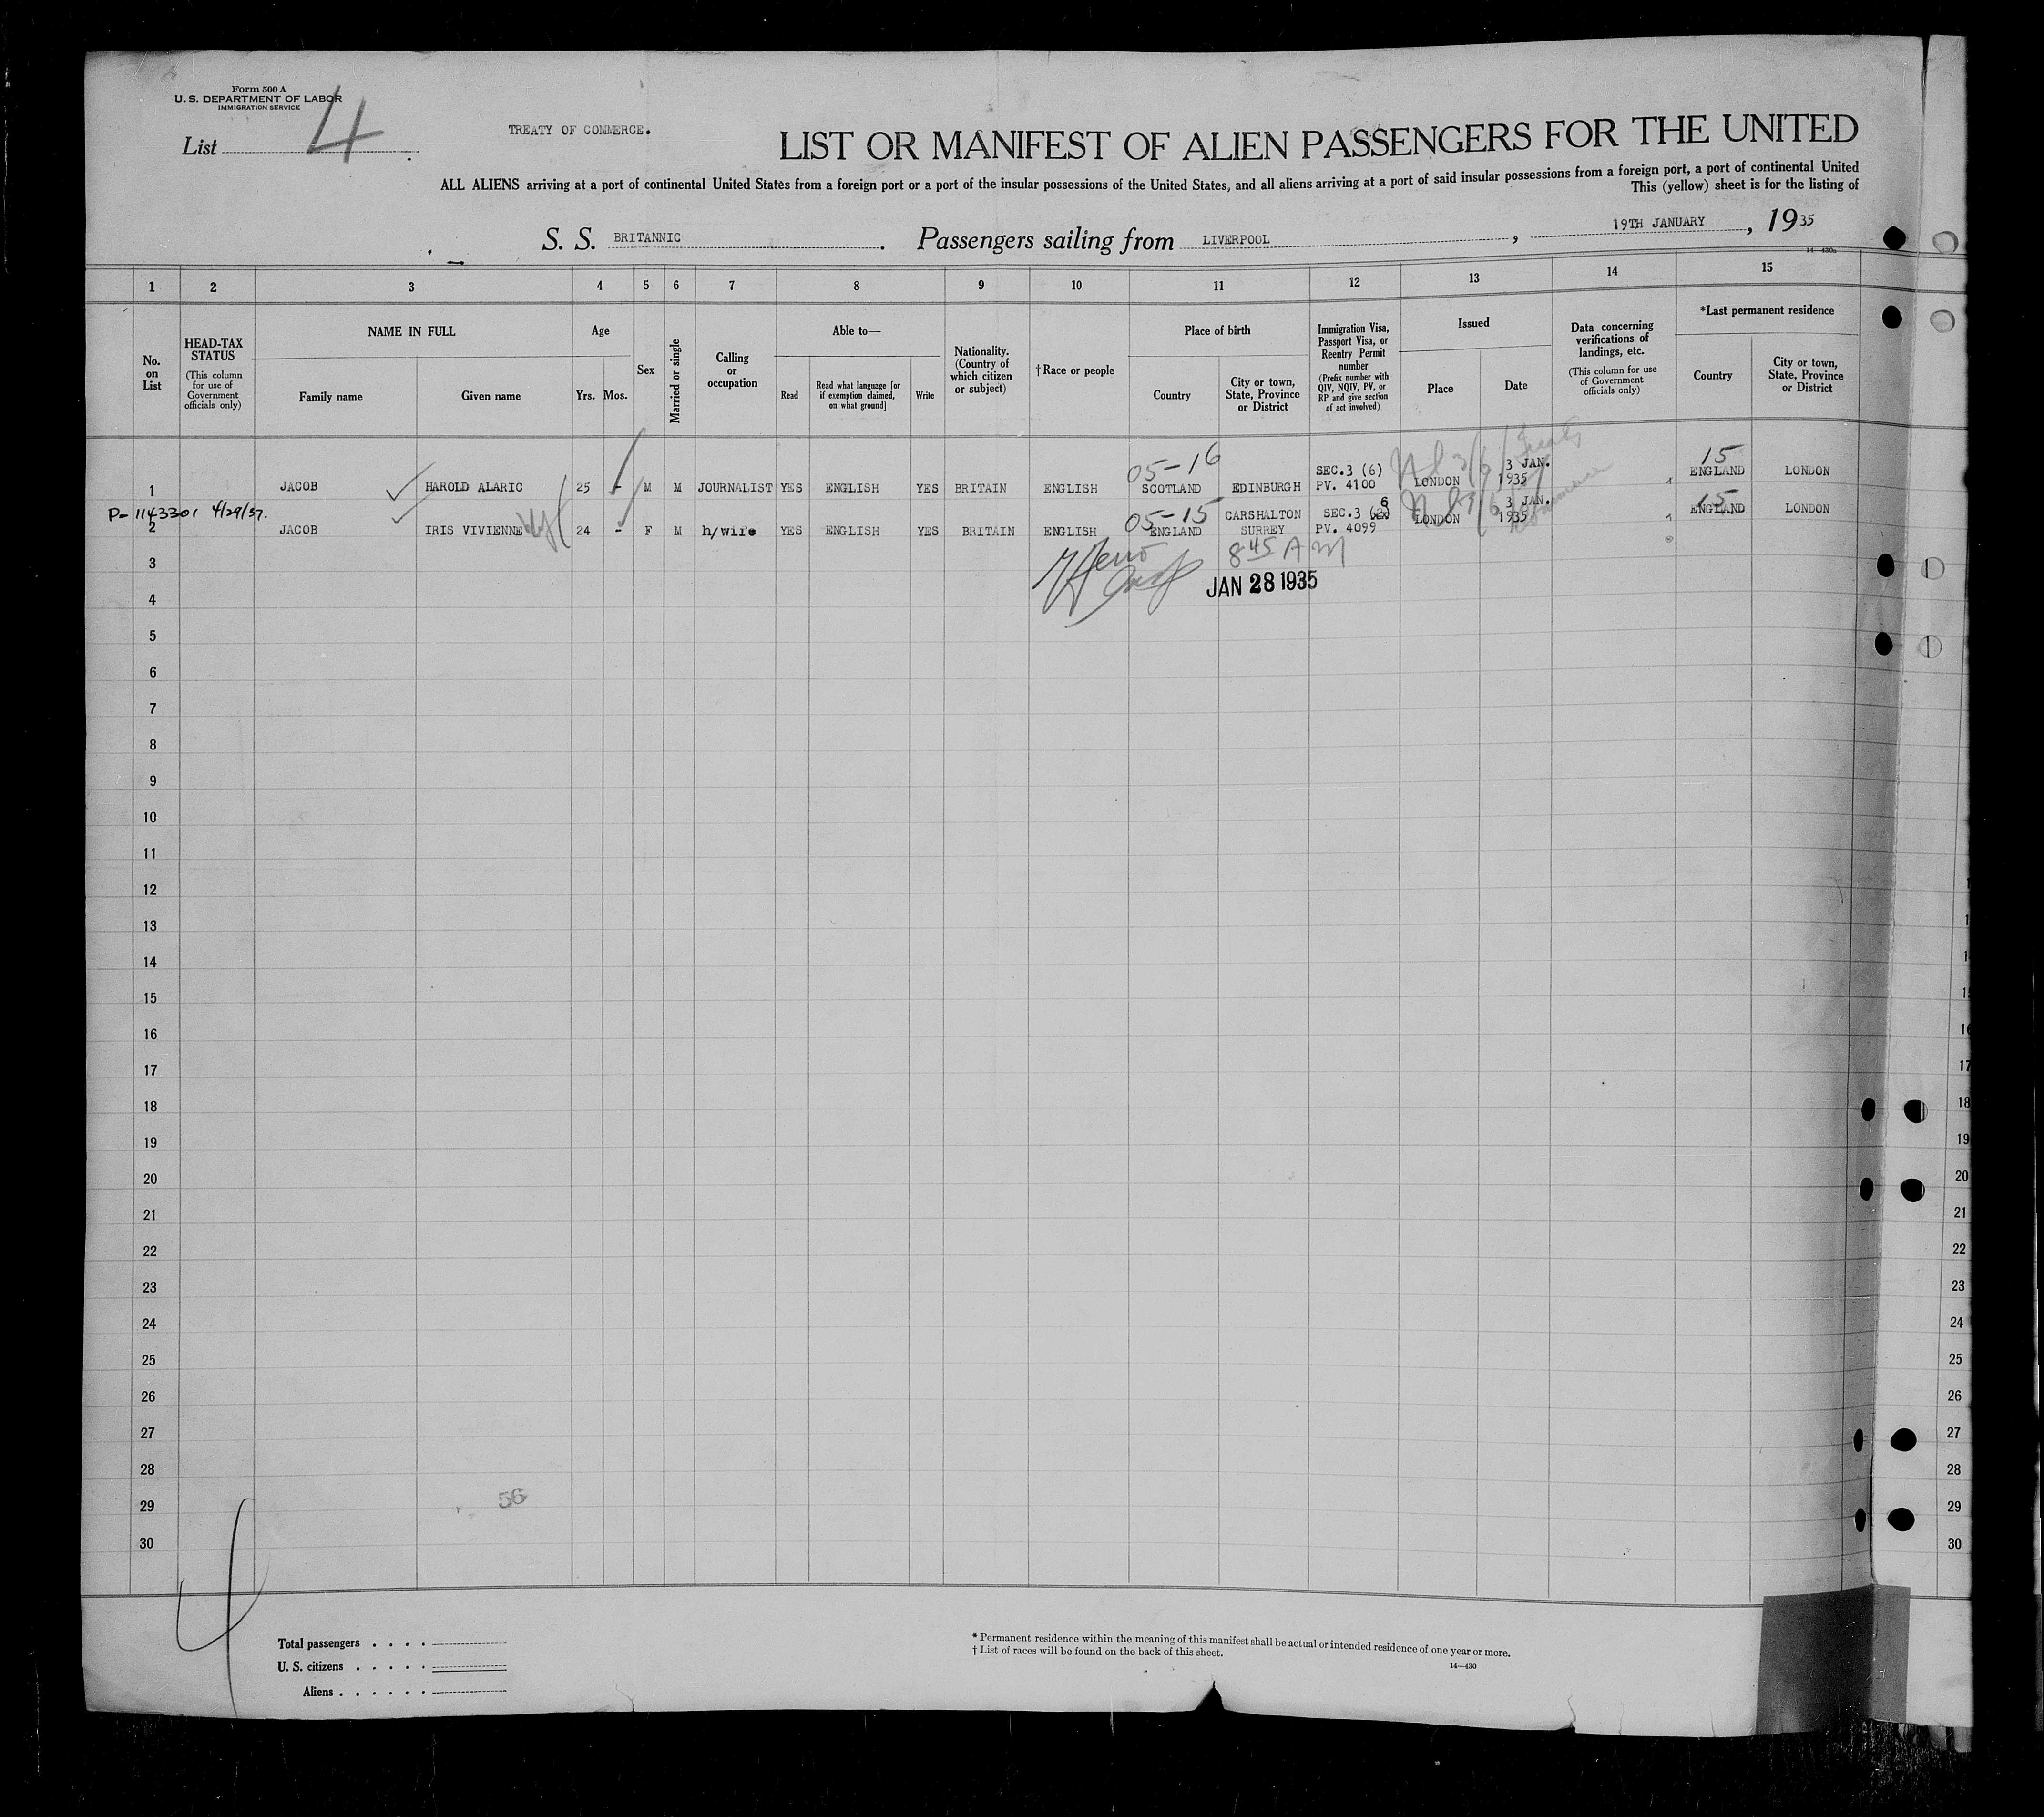 Form 500 A
U. S. DEPARTMENT OF LABOR
IMMIGRATION SERVICE
List 4
TREATY OF COMMERCE.
LIST OR MANIFEST OF ALIEN PASSENGERS FOR THE UNITED
ALL ALIENS arriving at a port of continental United States from a foreign port or a port of the insular possessions of the United States, and all aliens arriving at a port of said insular possessions from a foreign port, a port of continental United
This (yellow) sheet is for the listing of
S. S. BRITANNIC. Passengers sailing from LIVERPOOL, 19TH JANUARY, 1935
1 2 3 4 5 6 7 8 9 10 11 12 13 14 15
No. on List
HEAD-TAX STATUS
(This column for use of Government officials only)
NAME IN FULL
Family name
Given name
Age
Yrs. Mos.
Sex
Married or single
Calling or occupation
Able to—
Read
Read what language [or if exemption claimed, on what ground]
Write
Nationality. (Country of which citizen or subject)
†Race or people
Place of birth
Country
City or town, State, Province or District
Immigration Visa, Passport Visa, or Reentry Permit number
(Prefix number with QIV, NQIV, PV, or RP and give section of act involved)
Issued
Place
Date
Data concerning verifications of landings, etc.
(This column for use of Government officials only)
*Last permanent residence
Country
City or town, State, Province or District
05-16
15
1 JACOB HAROLD ALARIC 25 - M M JOURNALIST YES ENGLISH YES BRITAIN ENGLISH SCOTLAND EDINBURGH SEC.3 (6) PV. 4100 LONDON 3 JAN. 1935 ENGLAND LONDON
P-1143301 4/29/37.
05-15
15
2 JACOB IRIS VIVIENNE 24 - F M h/wife YES ENGLISH YES BRITAIN ENGLISH ENGLAND CARSHALTON SURREY SEC.3 6 PV. 4099 LONDON 3 JAN. 1935 ENGLAND LONDON
8 45 AM
JAN 28 1935
3
4
5
6
7
8
9
10
11
12
13
14
15
16
17 17
18 18
19 19
20 20
21 21
22 22
23 23
24 24
25 25
26 26
27 27
28 28
56
29 29
30 30
Total passengers . . . .
U. S. citizens . . . . .
Aliens . . . . . .
* Permanent residence within the meaning of this manifest shall be actual or intended residence of one year or more.
† List of races will be found on the back of this sheet.
14—430